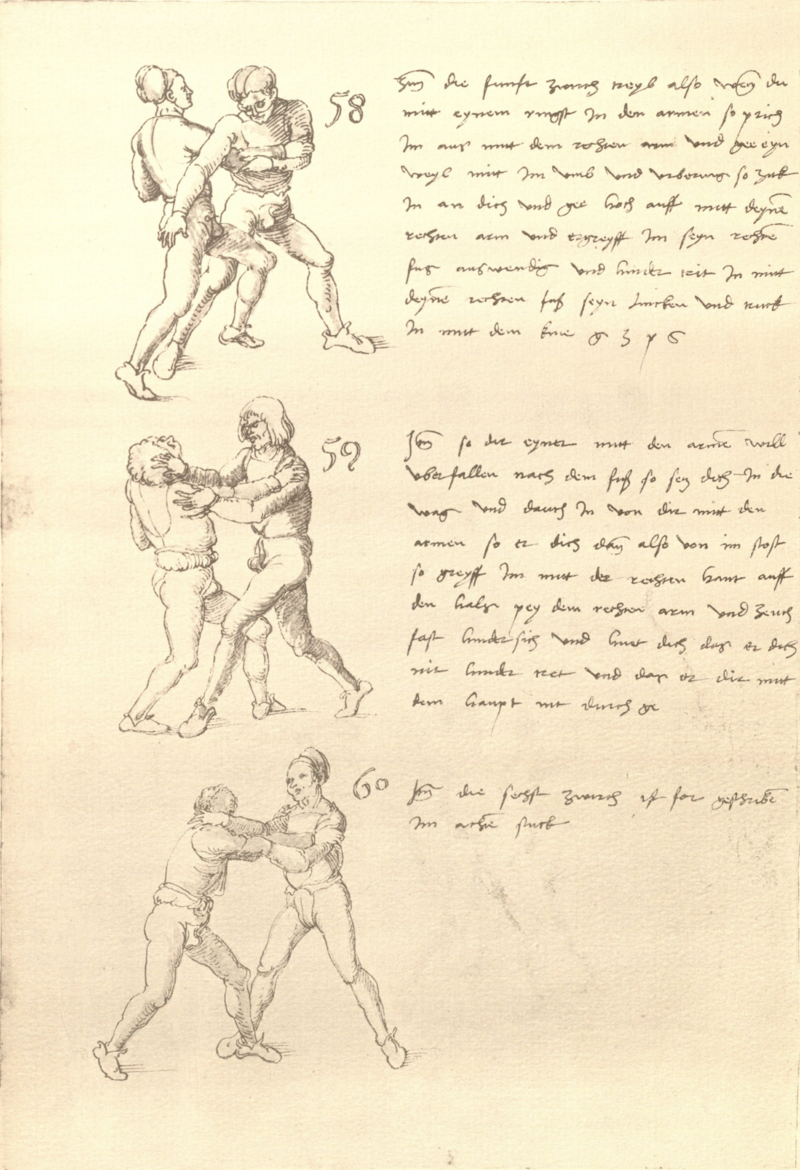 58
Itm die funft zwirch treyb also wen du
mitt eynem ringst In den armen so prich
Im aus mitt dem rechten arm und gee eyn
weyl mitt Im umb und so zuck
In an dich und gee hoch auff mitt deyne
rechten arm und ergreyff Im seyn rechte
fus auswendig und hinder trit In mitt
deyne rechten fuß seyn lincken und ruck
In mitt dem knie
59
Itm so dir eyner mitt den arme will
uberfallen nach dem fuß so setz dich In die
wag und dauch In von dir mitt den
armen so er dich dan also von im stost
so greyff Im mitt der rechten hant auff
den hals pey dem rechten arm und zeuch
fast hindersich und huet dich das er dich
nit hinder tret und das er dir mitt
dem haupt nit durch ge
60
Itm die sechst zwirch ist for geschribe
Im achte stuck